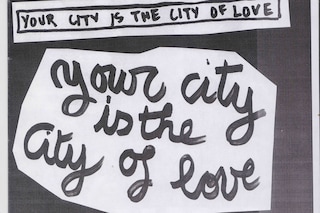 YOUR CITY IS THE CITY OF LOVE
your city
is the
city of love